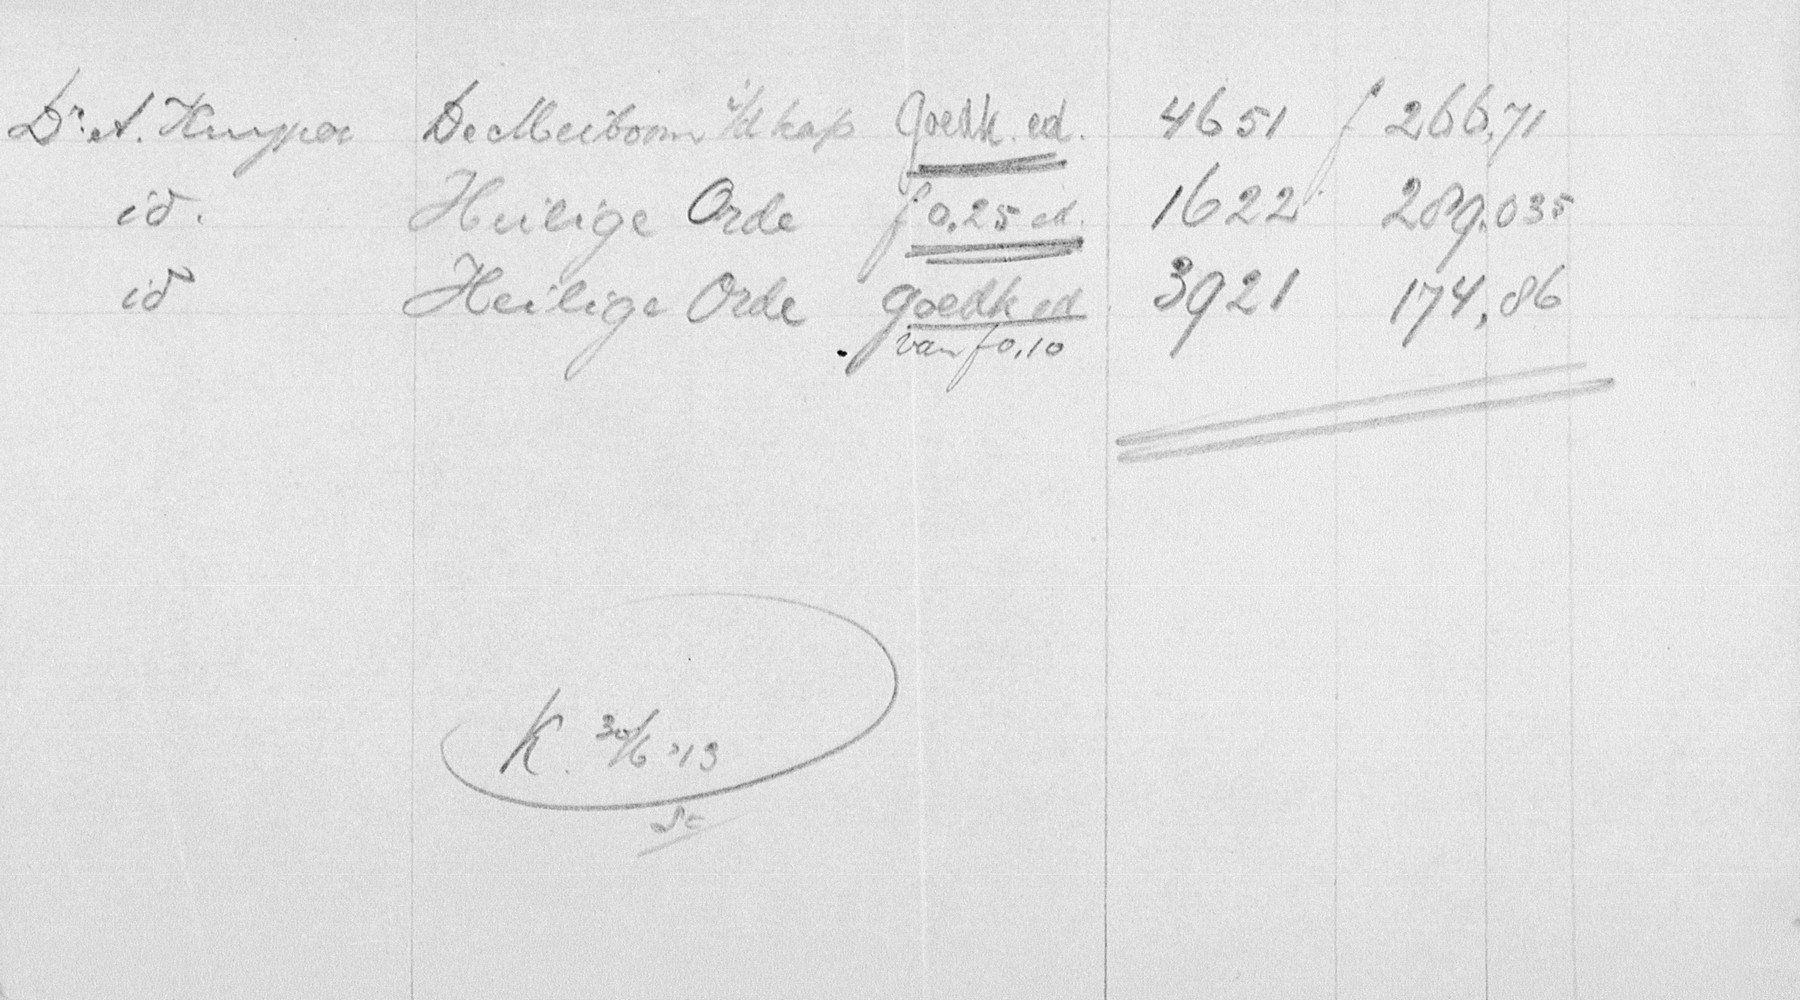 Dr. A. Kuyper De Meiboom i/d kap goedk. ed. 4651 f 266,71
id. Heilige Orde f 0.25 ed. 1622 289.035
id Heilige Orde goedk ed 3921 174,86
van f 0,10
K. 30/6 '13